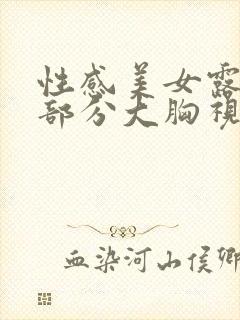 性感美女露
部分大胸視
血染河山侯卿